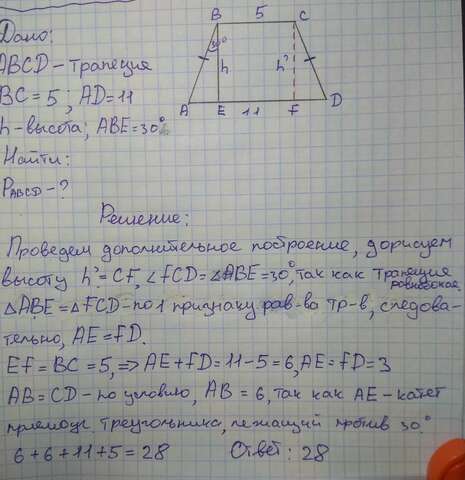 Дано:
ABCD - трапеция
BC = 5 ; AD = 11
h - высота; ABE = 30°
Найти:
PABCD - ?
B 5 C
30°
h h²
A E 11 F D
Решение:
Проведем дополнительное построение, дорисуем
высоту h² = CF, ∠FCD = ∠ABE = 30°, так как трапеция
равнобокая.
△ABE = △FCD - по 1 признаку рав-ва тр-в, следова-
тельно, AE = FD.
EF = BC = 5, => AE + FD = 11 - 5 = 6, AE = FD = 3
AB = CD - по условию, AB = 6, так как AE - катет
прямоуг. треугольника, лежащий против 30°.
6 + 6 + 11 + 5 = 28 Ответ: 28